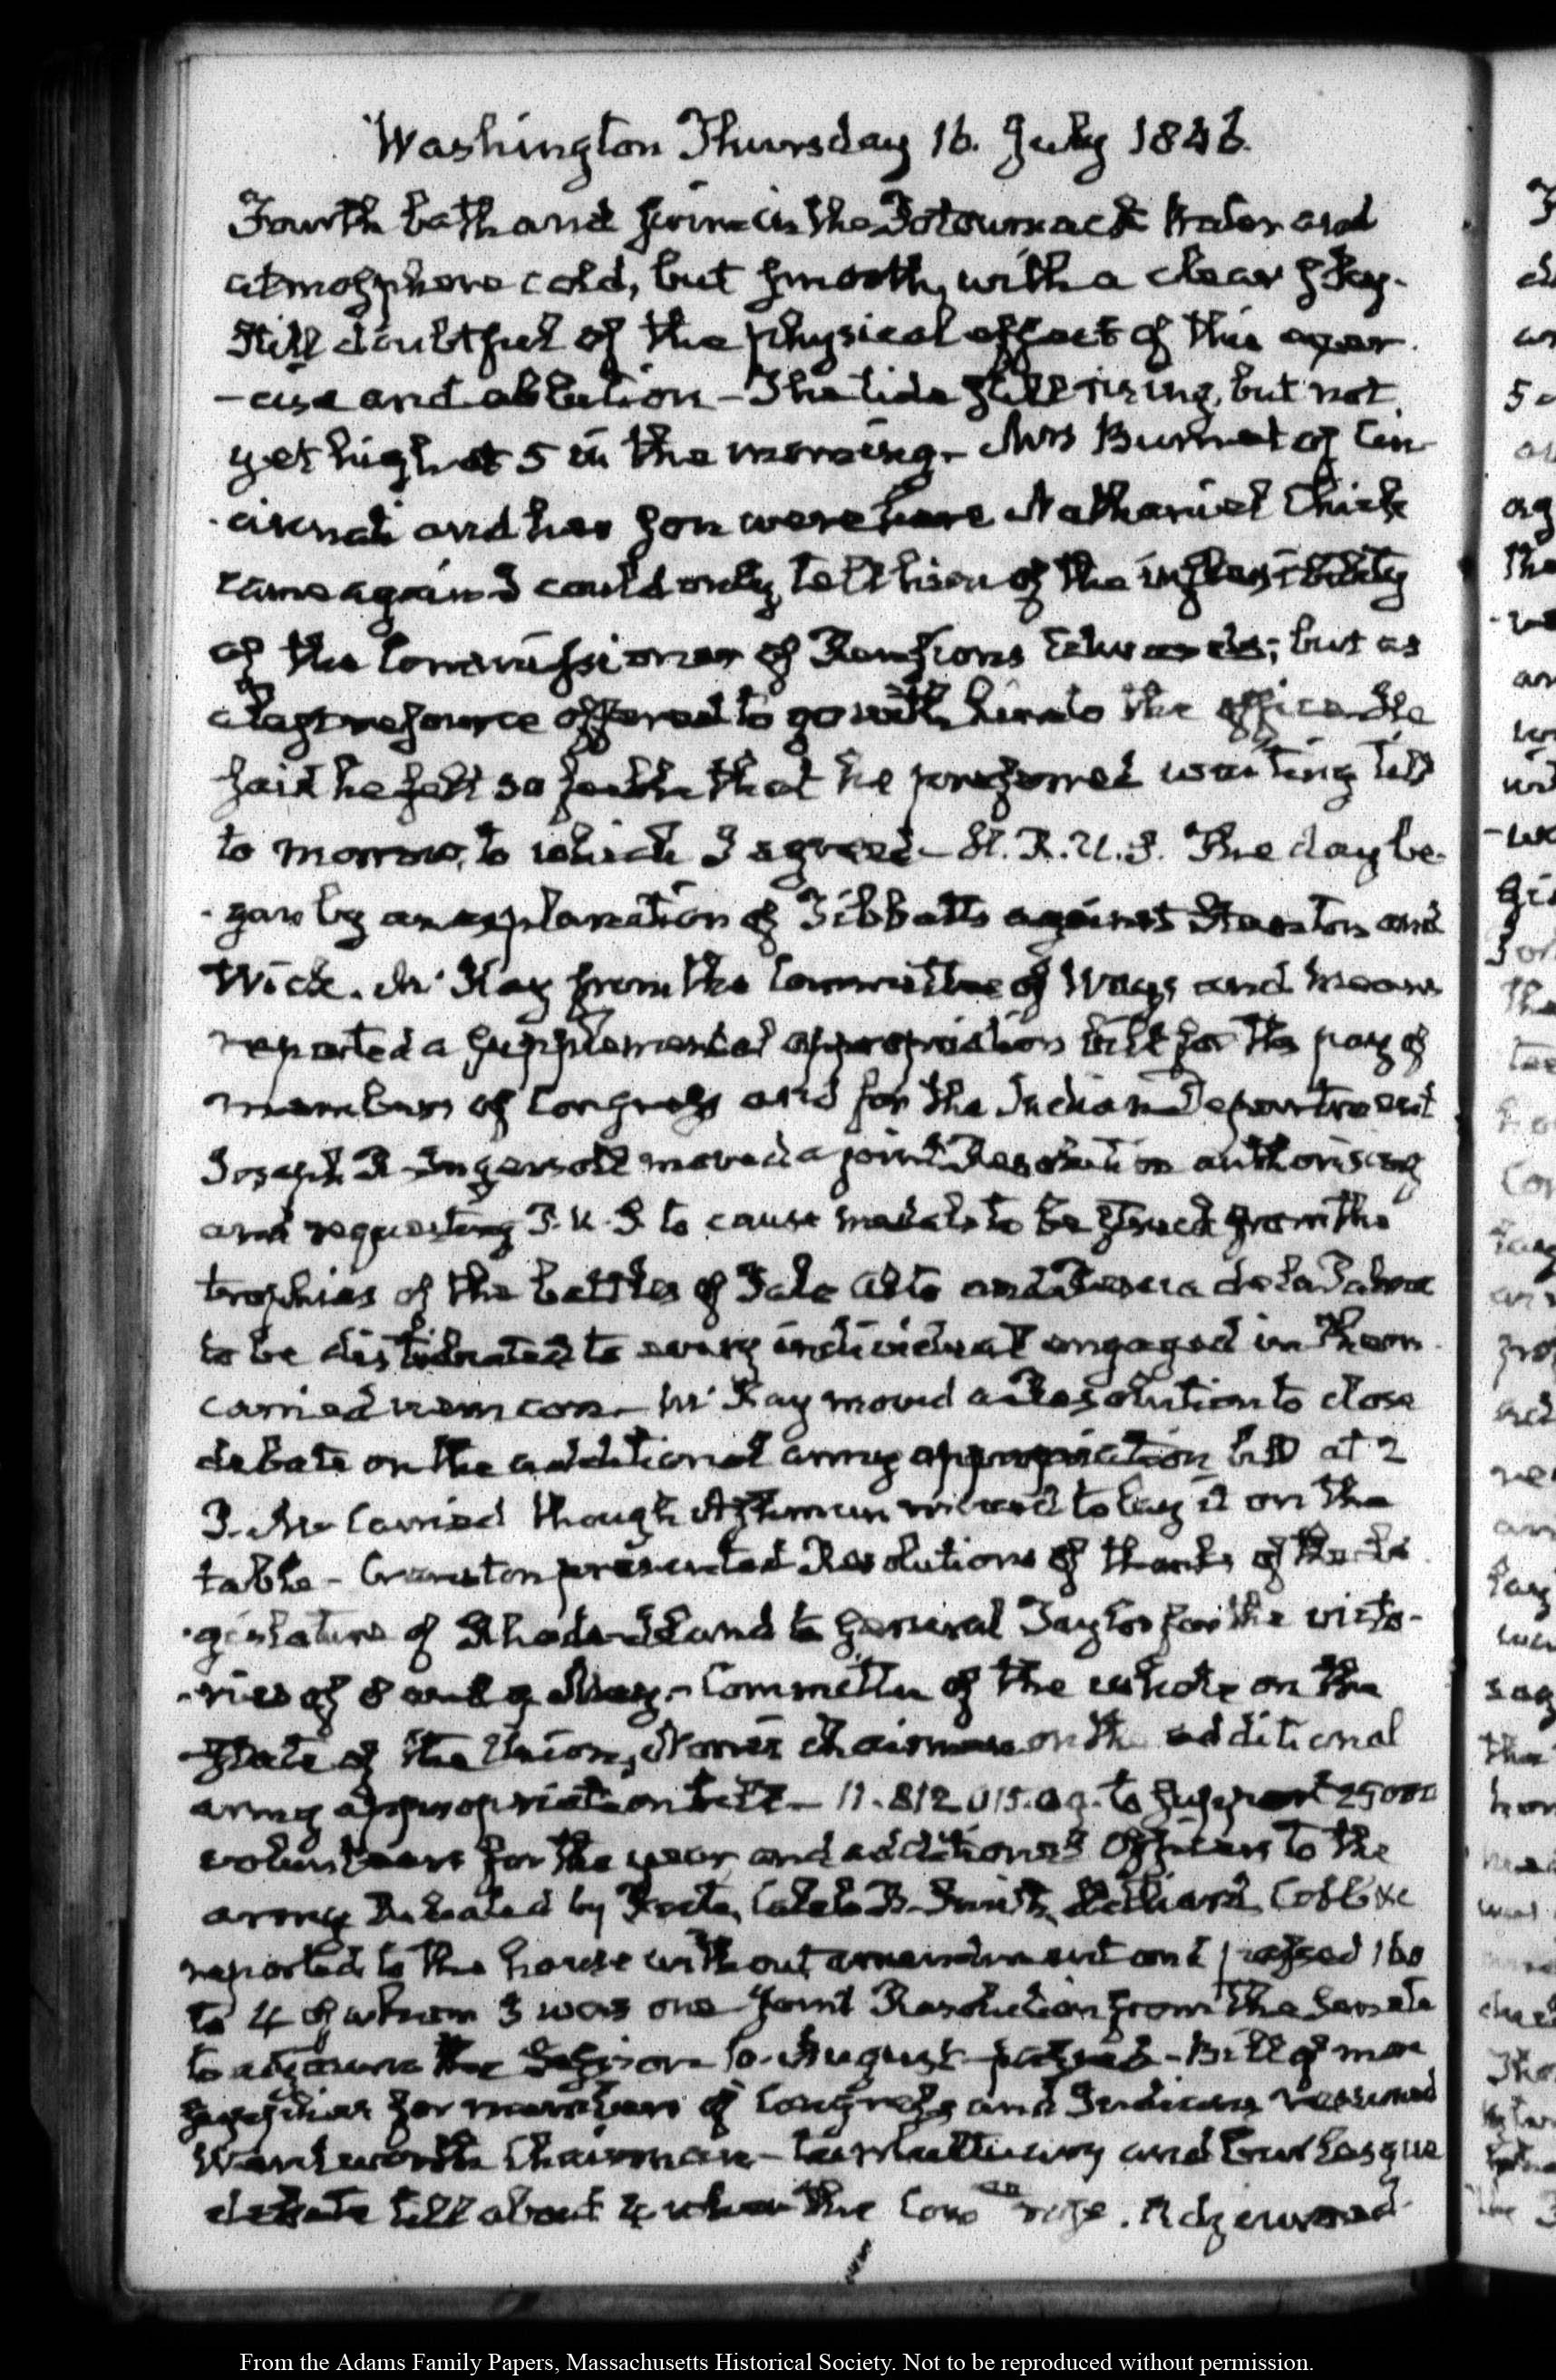 Washington Thursday 16. July 1846.
Fourth bath and swim in the Potowmack Water and
atmosphere cold, but smooth, with a clear sky.
Still doubtful of the physical effect of this exer-
-cise and ablution – The tide still rising, but not
yet high at 5 in the morning. – Mrs Burnet of Cin-
-cinnati and her son were here Nathaniel Chick
came again I could only tell him of the inflexibility
of the Commissioner of Pensions Edwards; but as
a last resource offered to go with him to the office He
said he felt so feeble that he preferred waiting till
to morrow, to which I agreed – H.R.U.S. The day be-
-gan by an explanation of Tibbatts against Stanton and
Wick. McKay from the Committee of Ways and Means
reported a supplemental appropriation bill for the pay of
members of Congress and for the Indian Department
Joseph R. Ingersoll moved a joint Resolution authorising
and requesting P.U.S. to cause medals to be struck from the
trophies of the battles of Palo Alto and Resaca de la Palma
to be distributed to every individual engaged in them.
carried nem con. – McKay moved a Resolution to close
debate on the additional army appropriation bill at 2
P.M. Carried though Ashmun moved to lay it on the
table – Cranston presented Resolutions of thanks of the Le
-gislature of Rhode-Island to General Taylor for the victo-
-ries of 8 and 9 May. – Committee of the whole on the
state of the Union, Norris chairman on the additional
army appropriation bill – 11.812 015.09. to support 25000
volunteers for the year, and additional Officers to the
army Debated by Root, Caleb B. Smith, Cobb &c
reported to the house without amendment and passed 160
to 4 of whom I was one Joint Resolution from the Senate
to adjourn the Session 10. August passed – Bill of more
supplies for members of Congress and Indians resumed
Wentworth Chairman – tumultuary and burlesque
debate till about 4 when the Com.ee rose. Adjourned.
From the Adams Family Papers, Massachusetts Historical Society. Not to be reproduced without permission.